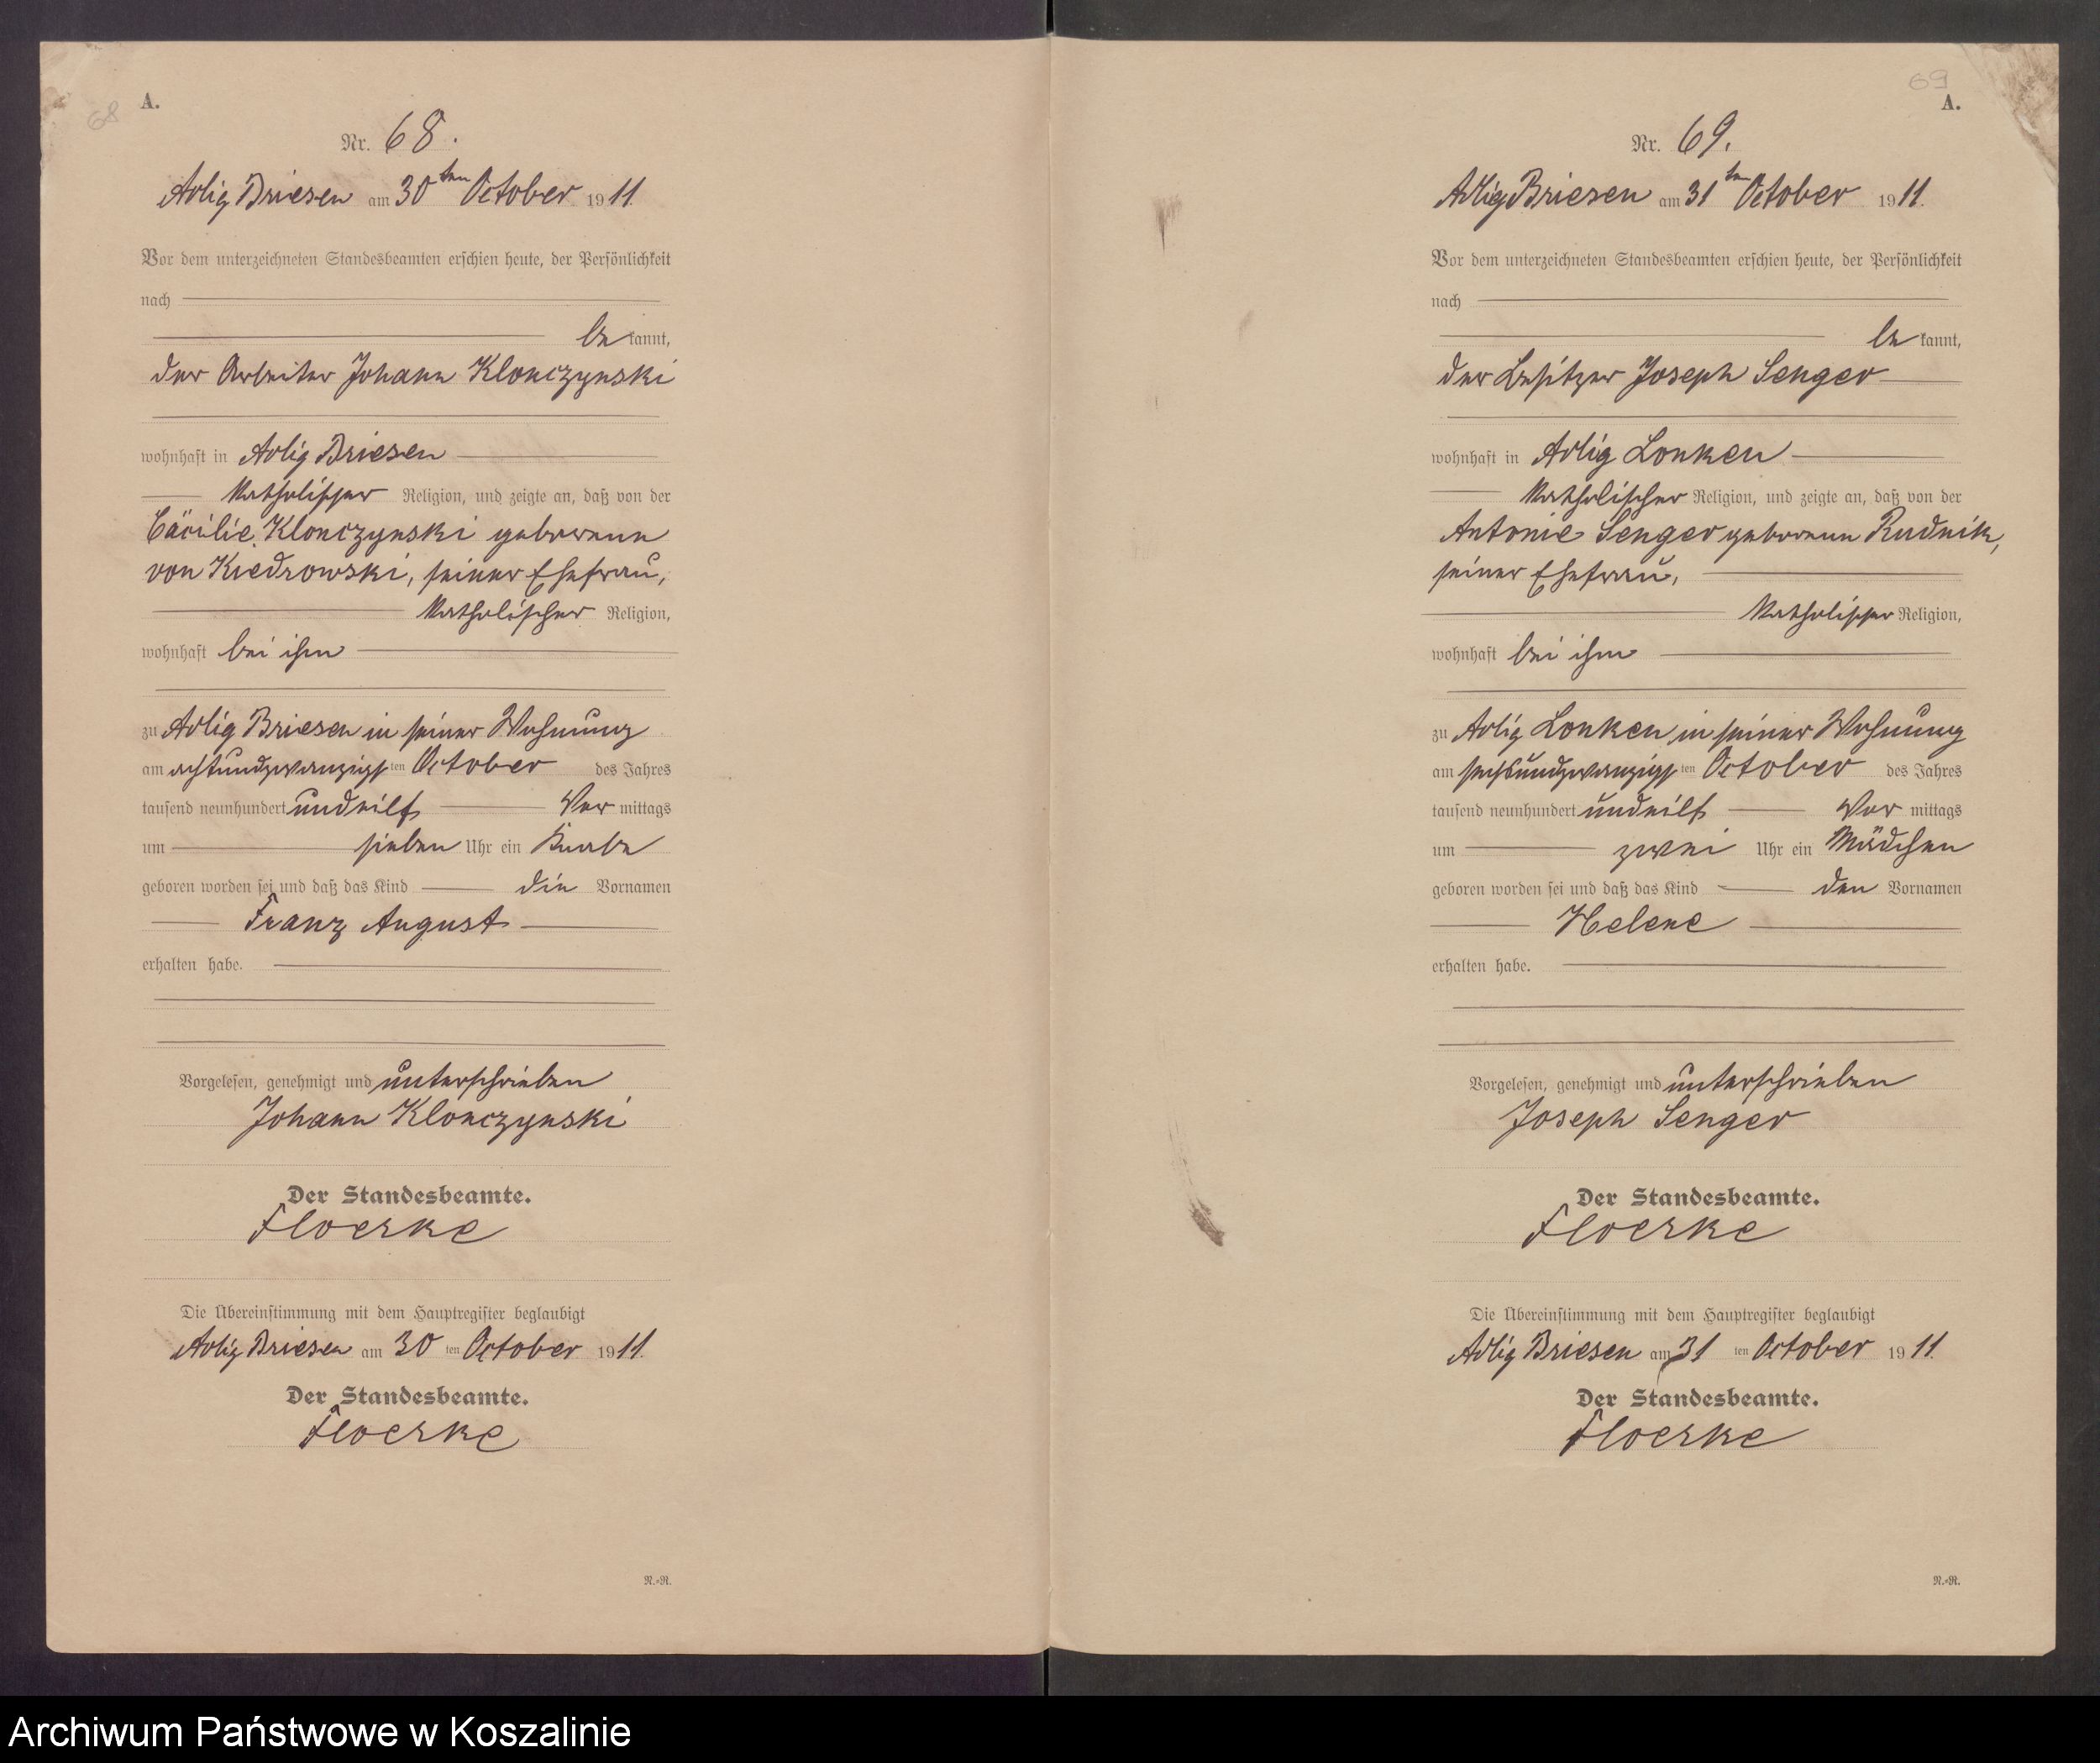 68
A.
Nr. 68.
Adlig Briesen am 30ten October 1911.
Vor dem unterzeichneten Standesbeamten erschien heute, der Persönlichkeit
nach
bekannt,
der Arbeiter Johann Klonczynski
wohnhaft in Adlig Briesen
katholischer Religion, und zeigte an, daß von der
Cäcilie Klonczynski geborenen
von Kiedrowski, seiner Ehefrau,
katholischer Religion,
wohnhaft bei ihm
zu Adlig Briesen in seiner Wohnung
am achtundzwanzigsten October des Jahres
tausend neunhundert undeilf Vormittags
um sieben Uhr ein Knabe
geboren worden sei und daß das Kind die Vornamen
Franz August
erhalten habe.
Vorgelesen, genehmigt und unterschrieben
Johann Klonczynski
Der Standesbeamte.
Floerke
Die Übereinstimmung mit dem Hauptregister beglaubigt
Adlig Briesen am 30ten October 1911.
Der Standesbeamte.
Floerke
N.-R.
69
A.
Nr. 69.
Adlig Briesen am 31ten October 1911.
Vor dem unterzeichneten Standesbeamten erschien heute, der Persönlichkeit
nach
bekannt,
der Besitzer Joseph Senger
wohnhaft in Adlig Lonken
katholischer Religion, und zeigte an, daß von der
Antonie Senger geborenen Rudnik,
seiner Ehefrau,
katholischer Religion,
wohnhaft bei ihm
zu Adlig Lonken in seiner Wohnung
am sechsundzwanzigsten October des Jahres
tausend neunhundert undeilf Vormittags
um zwei Uhr ein Mädchen
geboren worden sei und daß das Kind den Vornamen
Helene
erhalten habe.
Vorgelesen, genehmigt und unterschrieben
Joseph Senger
Der Standesbeamte.
Floerke
Die Übereinstimmung mit dem Hauptregister beglaubigt
Adlig Briesen am 31ten October 1911.
Der Standesbeamte.
Floerke
N.-R.
Archiwum Państwowe w Koszalinie